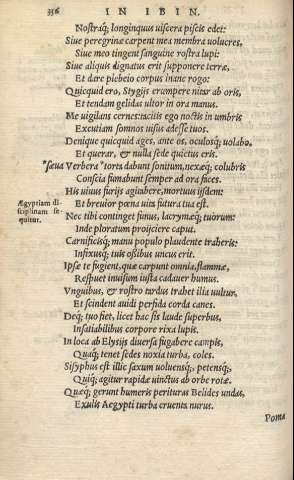 356 IN IBIN.
Nostraq́; longinquus uiscera piscis edet:
Siue peregrinæ carpent mea membra uolucres,
Siue meo tingent sanguine rostra lupi:
Siue aliquis dignatus erit supponere terræ,
Et dare plebeio corpus inane rogo:
Quicquid ero, Stygijs erumpere nitar ab oris,
Et tendam gelidas ultor in ora manus.
Me uigilans cernes: tacitis ego noctis in umbris
Excutiam somnos uisus adesse tuos.
Denique quicquid ages, ante os, oculosq́; uolabo,
Et querar, & nulla sede quietus eris.
*sæua Verbera *torta dabunt sonitum, nexæq́; colubris
Conscia fumabunt semper ad ora faces.
His uiuus furijs agitabere, mortuus ijsdem:
Ægyptiam di
sciplinam se
quitur.
Et breuior pœna uita futura tua est.
Nec tibi continget funus, lacrymæq́; tuorum:
Inde ploratum proijciere caput.
Carnificisq́; manu populo plaudente traheris:
Infixusq́; tuis oßibus uncus erit.
Ipsæ te fugient, quæ carpunt omnia, flammæ,
Respuet inuisum iusta cadauer humus.
Vnguibus, & rostro tardus trahet ilia uultur,
Et scindent auidi perfida corda canes.
Deq́; tuo fiet, licet hac sis laude superbus,
Insatiabilibus corpore rixa lupis.
In loca ab Elysijs diuersa fugabere campis,
Quasq́; tenet sedes noxia turba, coles.
Sisyphus est illic saxum uoluensq́;, petensq́;,
Quiq́; agitur rapidæ uinctus ab orbe rotæ.
Quæq́; gerunt humeris perituras Belides undas,
Exulis Aegypti turba cruenta nurus.
Poma